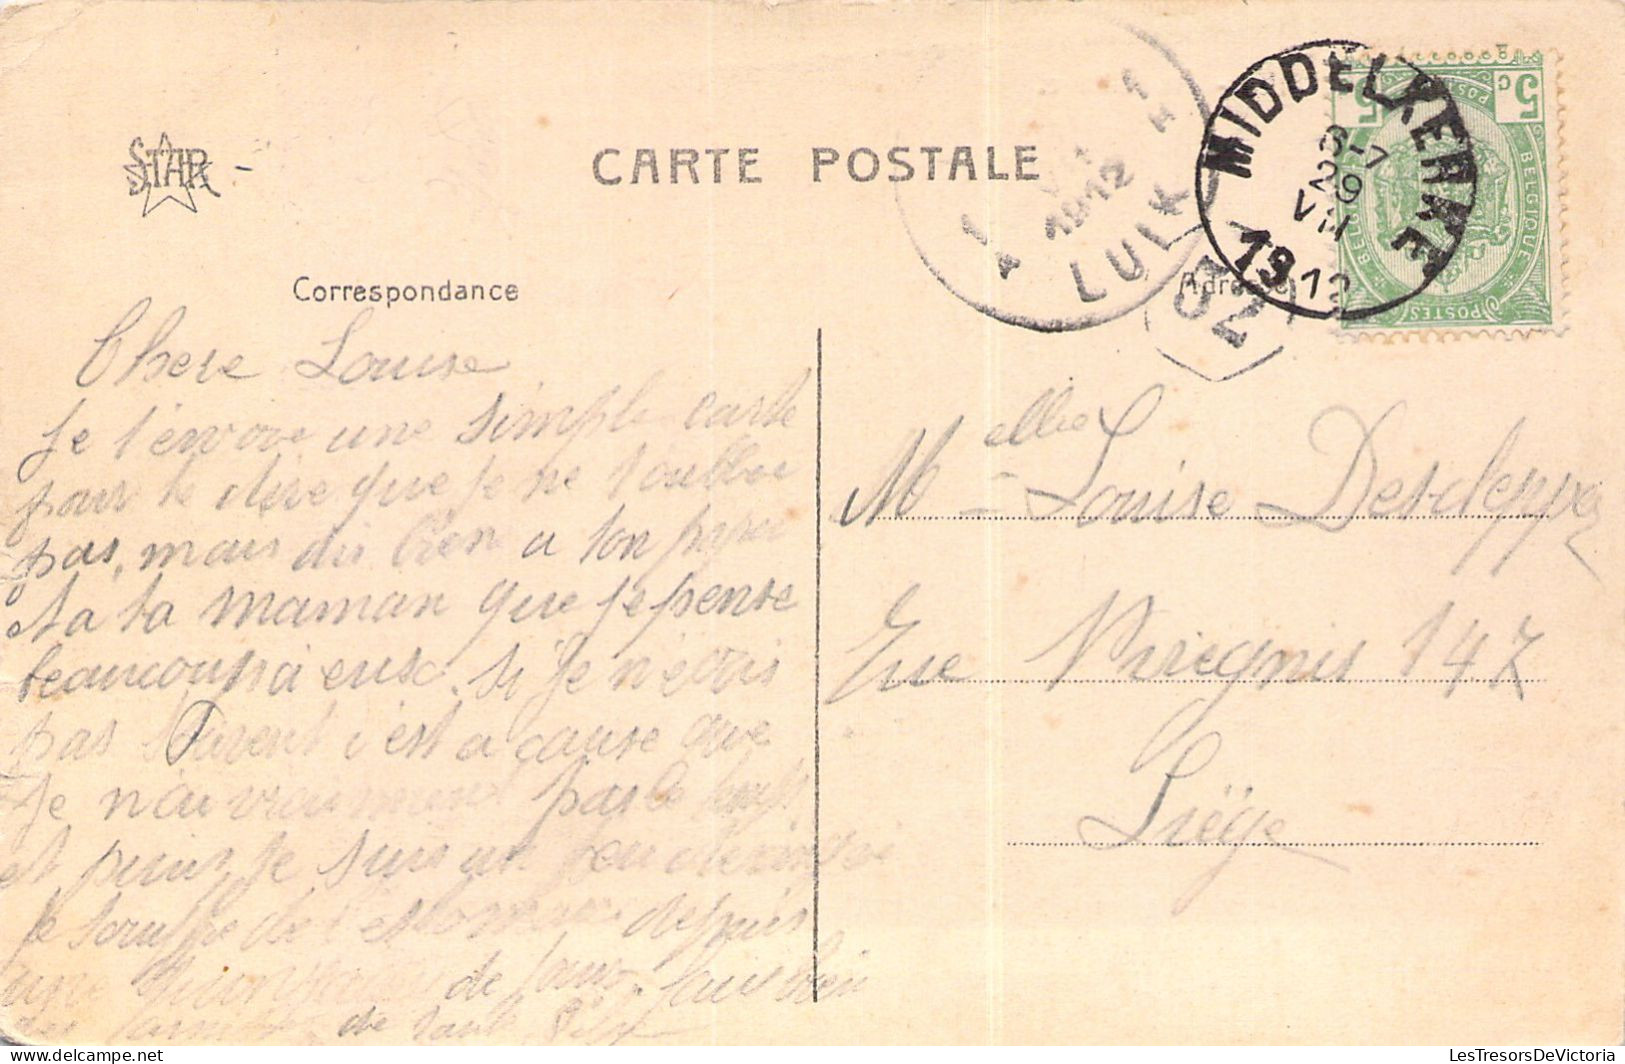 STAR
CARTE POSTALE
Correspondance
Adresse
MIDDELKERKE
6-7
29
VII
1912
1912
LUIK
5 C 5
POSTES
BELGIQUE
Chere Louise
Je t'envove une simple carte
pour te dire que je ne t'oublie
pas, mais dis bien a ton papa
et a ta maman que je pense
beaucoup a eux. Si je n'ecris
pas souvent c'est a cause que
Je n'ai vraiment pas le temps
et puis je suis un peu
Je souffre de l'estomac depuis
une quinzaine de jours. fais bien
des de
Melle Louise Desdeppe
Rue 147
Liège
LesTresorsDeVictoria